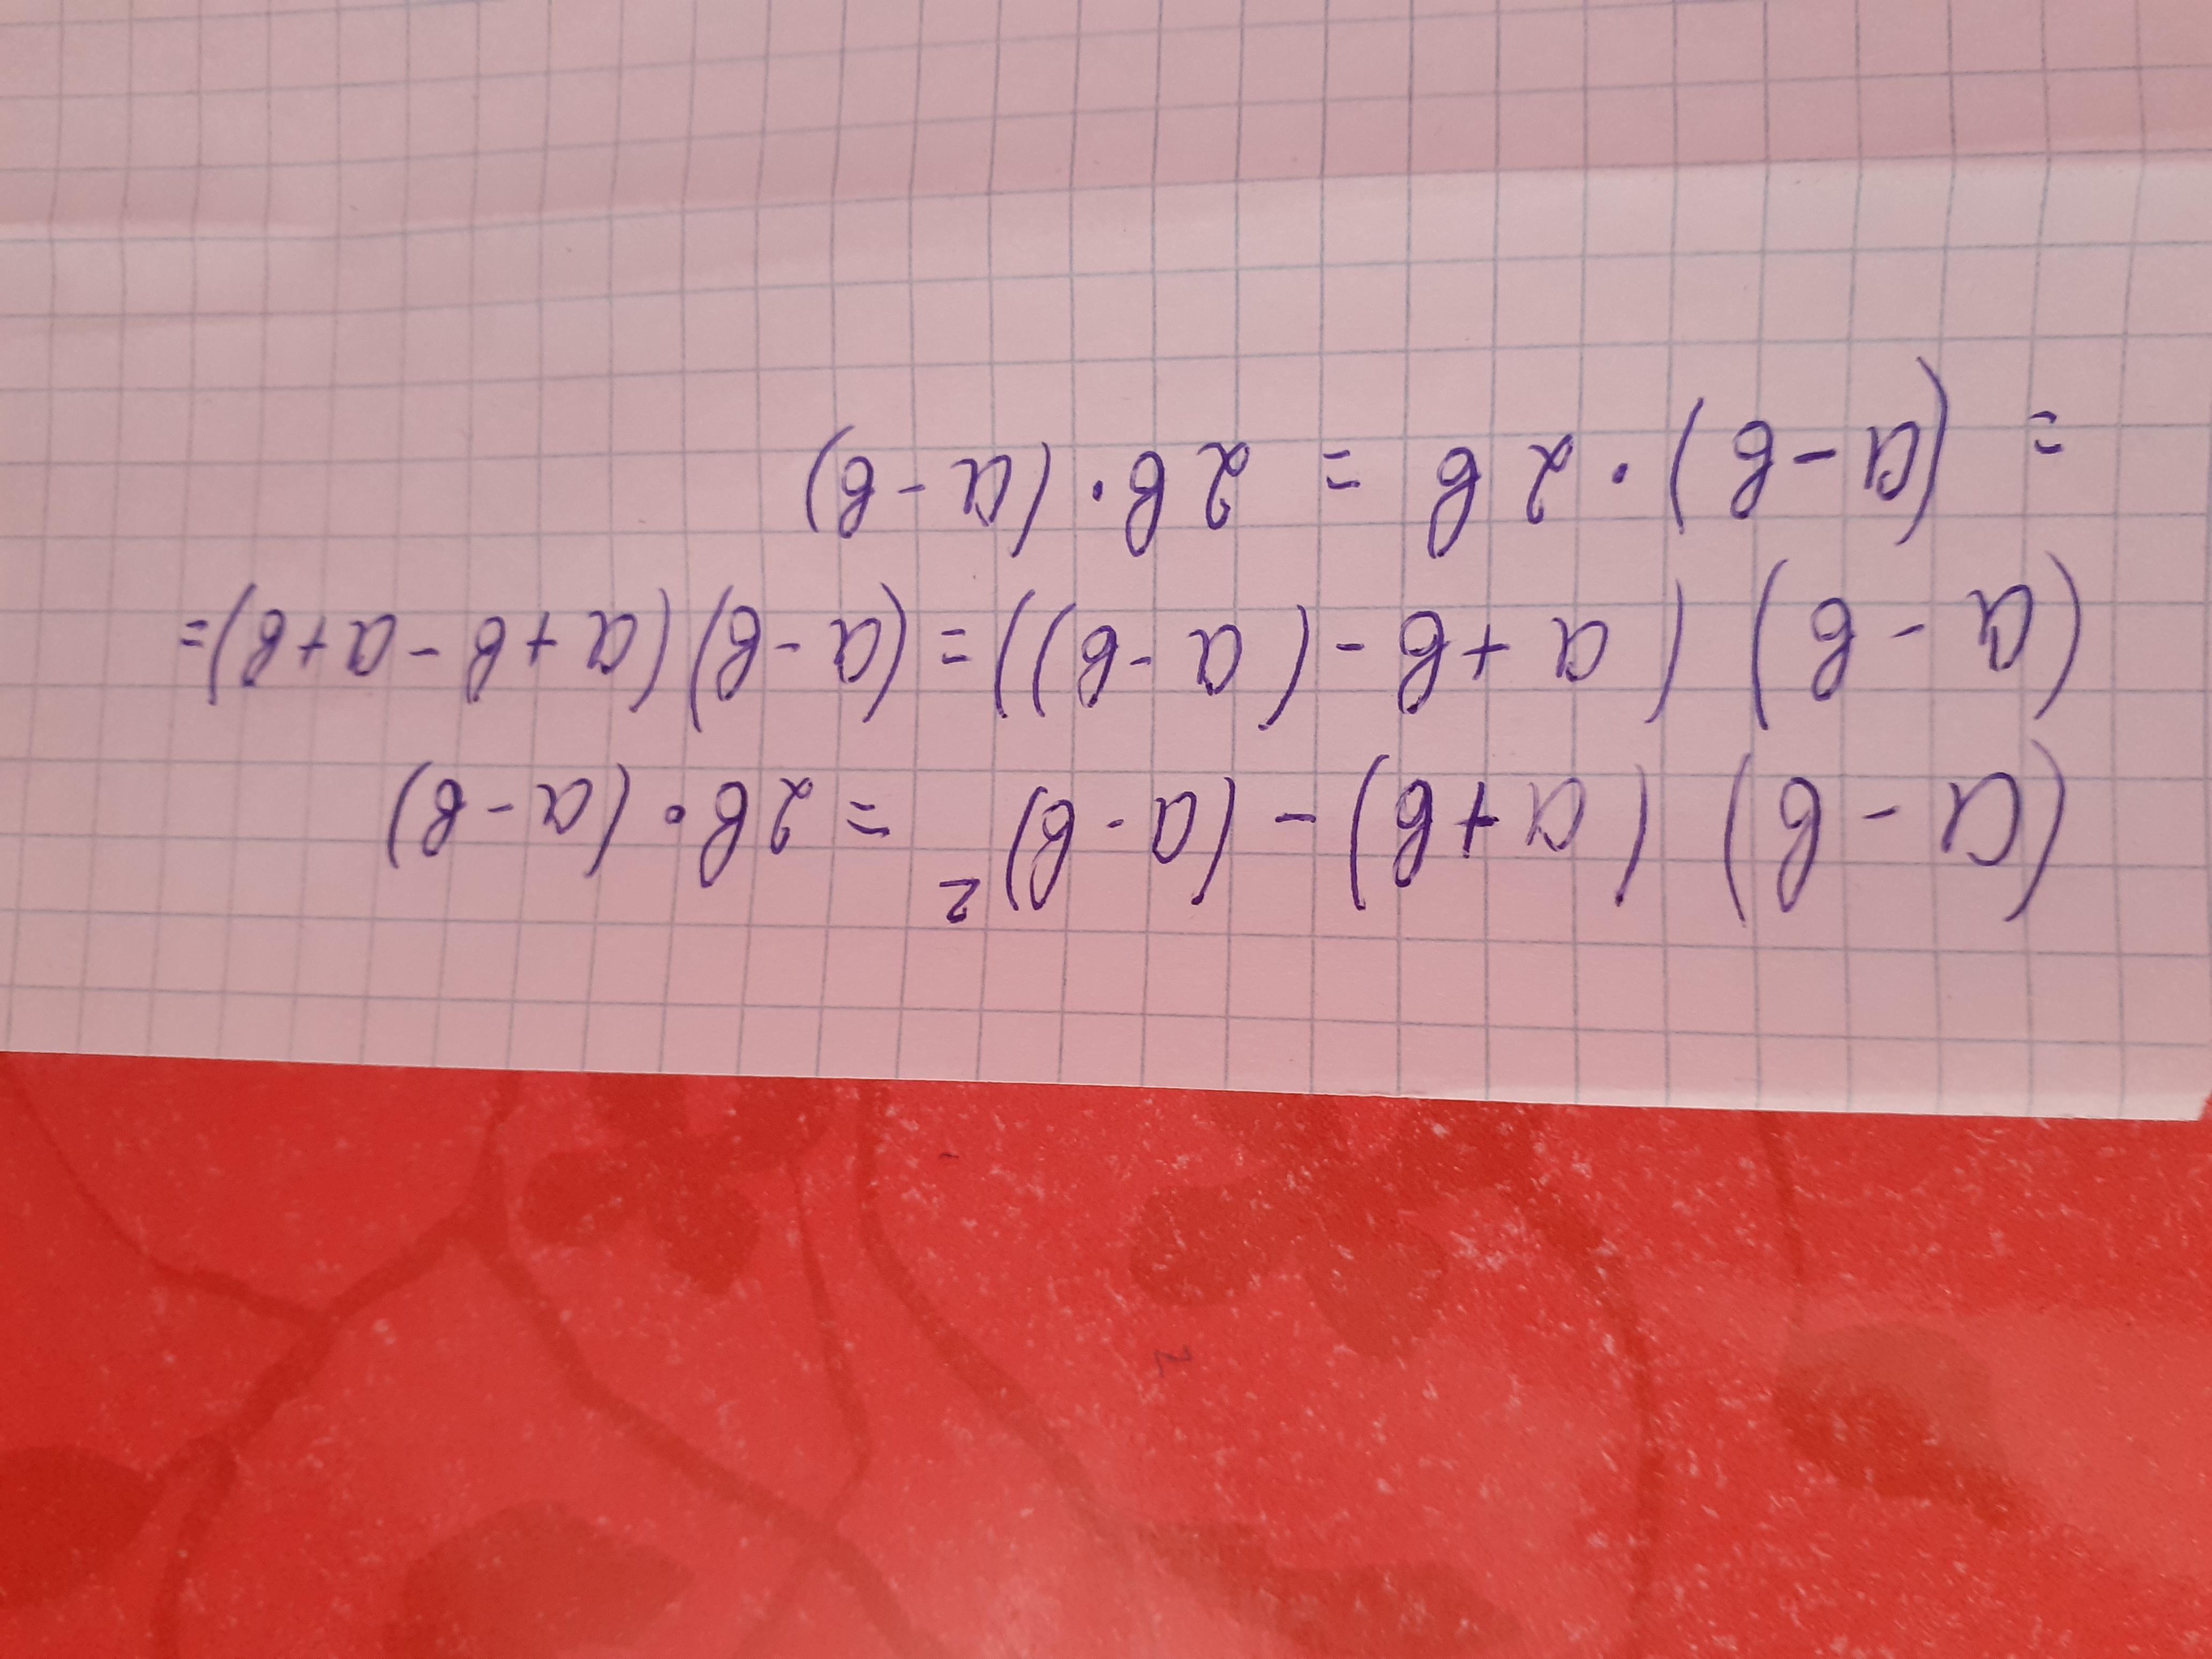 (a - b)(a + b) - (a - b)² = 2b · (a - b)
(a - b)(a + b - (a - b)) = (a - b)(a + b - a + b) =
= (a - b) · 2b = 2b · (a - b)